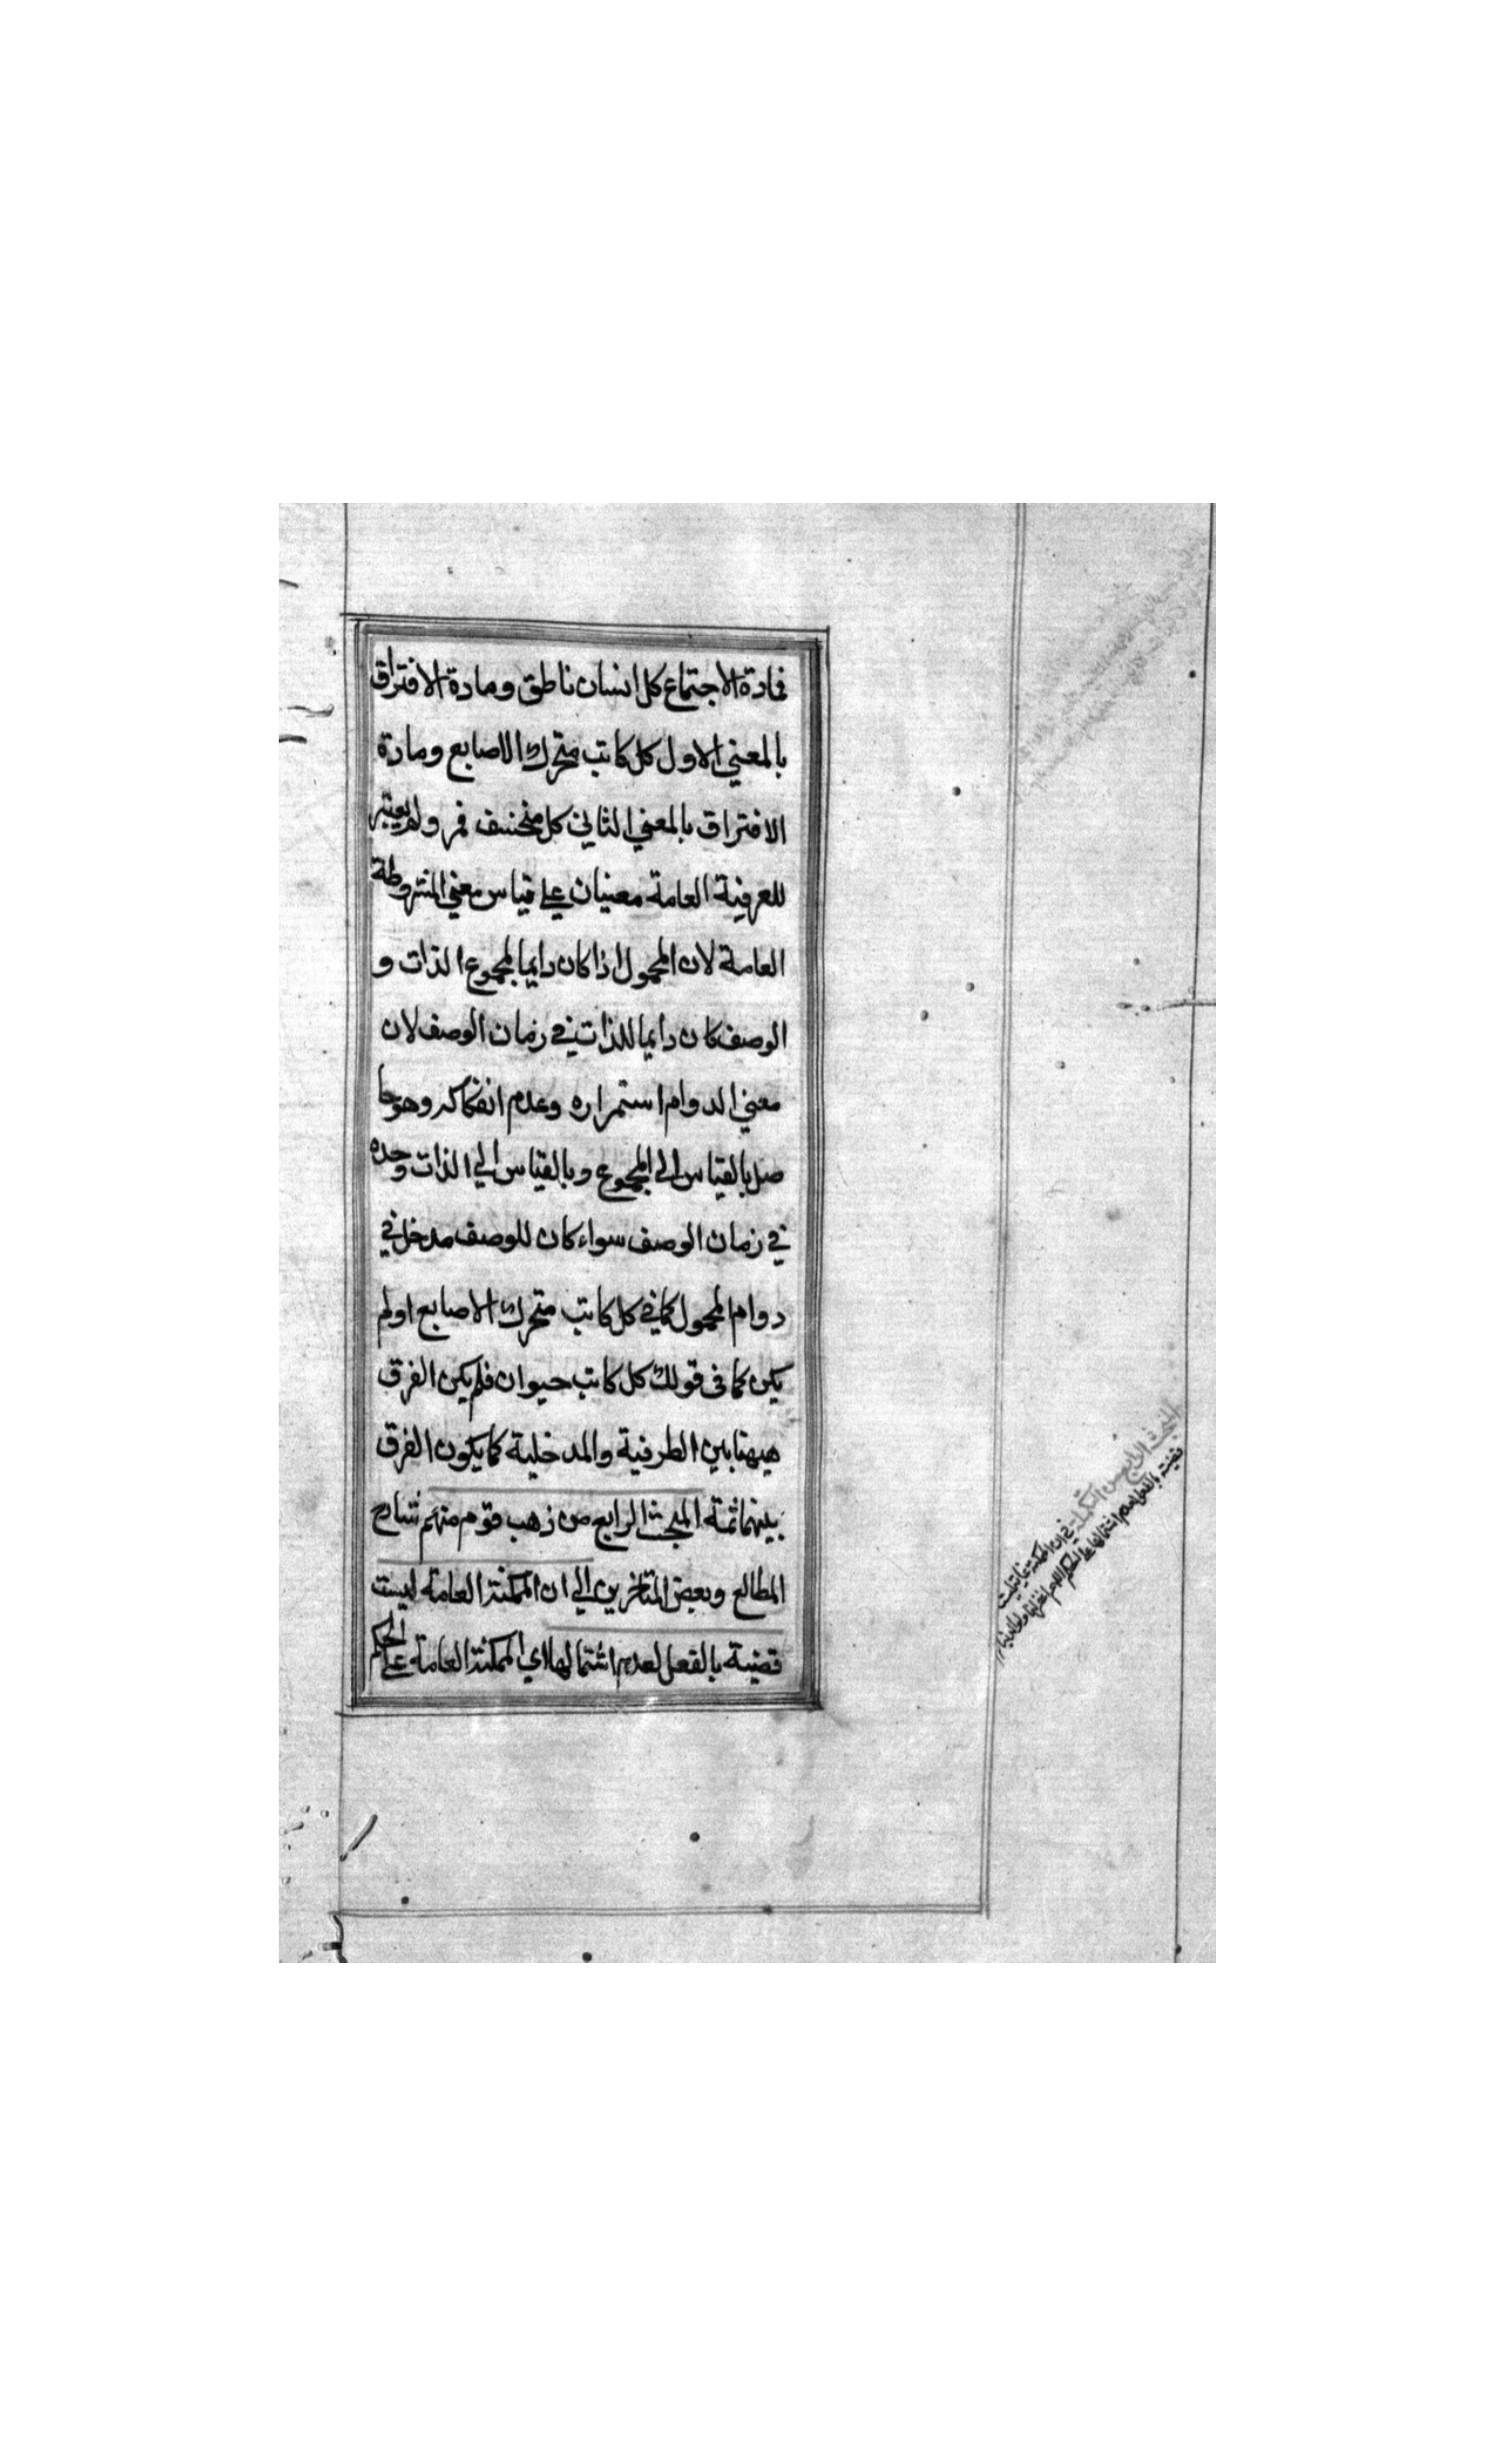 فمادة الاجتماع كل انسان ناطق ومادة الافتراق
بالمعني الاول كل كاتب متحرك الاصابع ومادة
الافتراق بالمعني الثاني كل منخسف قمر ولم يعتبر
للعرفية العامة معنيان علي قياس معني المشروطة
العامة لان المحمول اذا كان دايما لمجموع الذات و
الوصف كان دايما للذات في زمان الوصف لان
معني الدوام استمراره وعدم انفكاكه وهو حا
صل بالقياس الي المجموع وبالقياس الي الذات وحده
في زمان الوصف سواء كان للوصف مدخل في
دوام المحمول كما في كل كاتب متحرك الاصابع اولم
يكن كما في قولك كل كاتب حيوان فلم يكن الفرق
هيهنا بين الظرفية والمدخلية كما يكون الفرق
بينهما ثمة المبحث الرابع من ذهب قوم منهم شارح
المطالع وبعض المتاخرين الي ان الممكنة العامة ليست
قضية بالفعل لعدم اشتمالها اي الممكنة العامة علي الحكم
المبحث الرابع من التكملة في ان الممكنة العامة ليست
قضية بالفعل لعدم اشتمالها علي الحكم